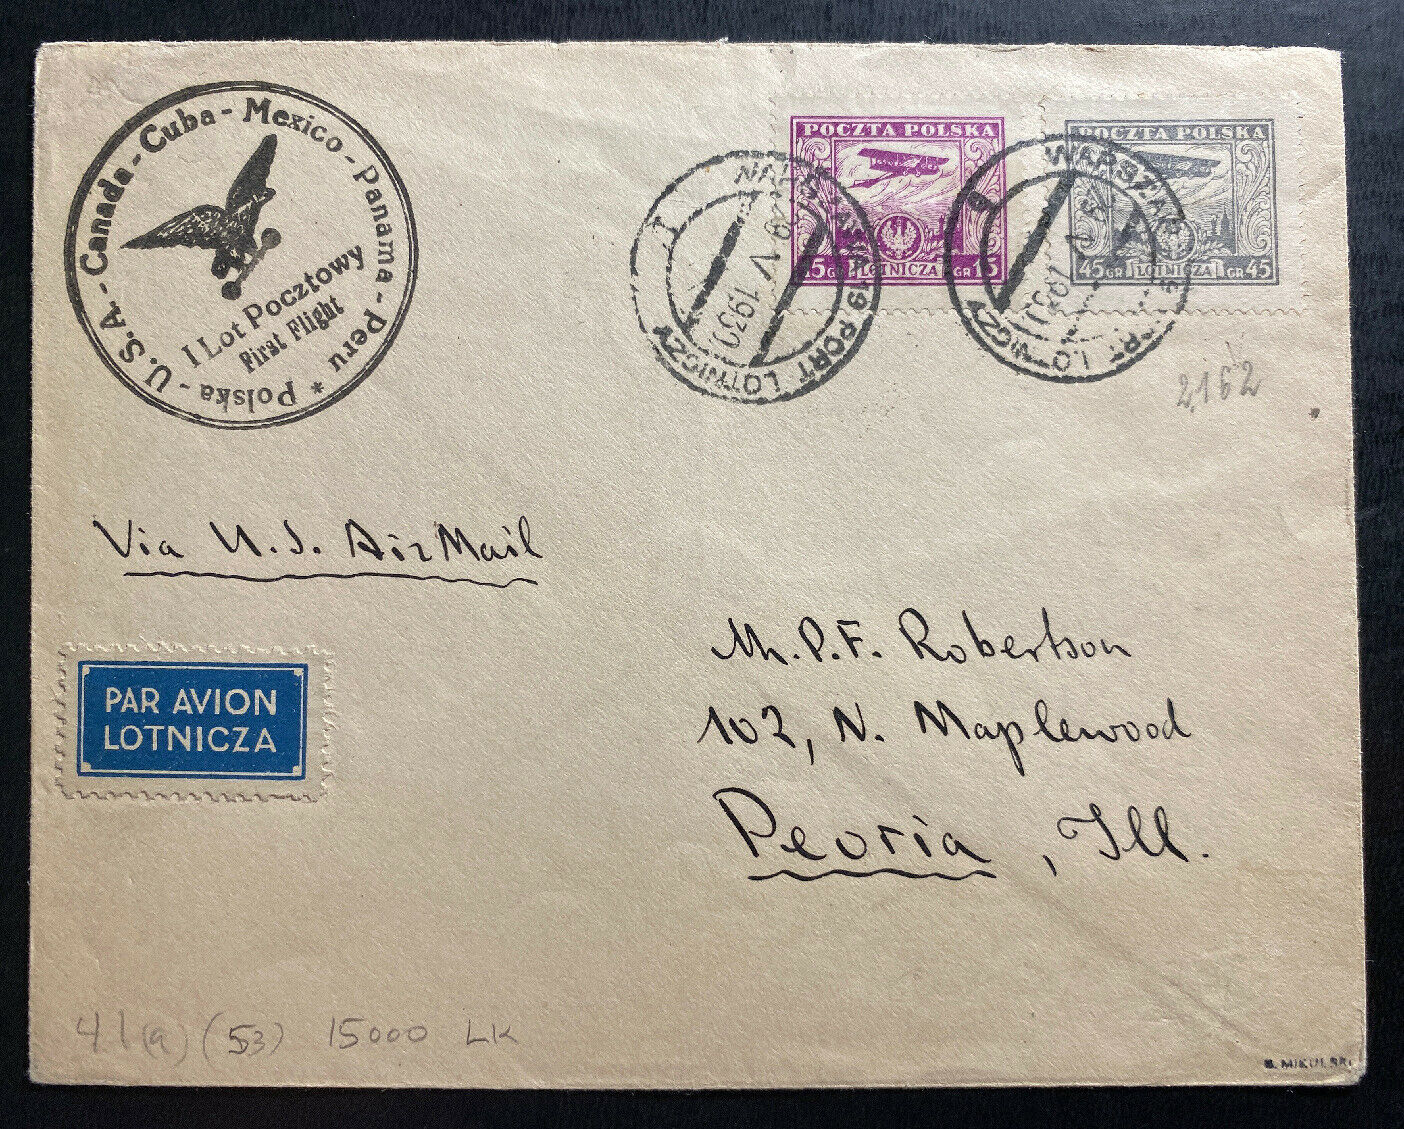 Polska - U.S.A. - Canada - Cuba - Mexico - Panama - Peru *
I Lot Pocztowy
First Flight
POCZTA POLSKA
15 GR LOTNICZA GR 15
POCZTA POLSKA
45 GR LOTNICZA GR 45
WARSZAWA 19 PORT LOTNICZY
V 1930
WARSZAWA 19 PORT LOTNICZY
2162
Via U.S. Air Mail
PAR AVION
LOTNICZA
Mr. P.F. Robertson
102, N. Maplewood
Peoria, Ill.
41(a) (53) 15000 LK
S. MIKULSKI